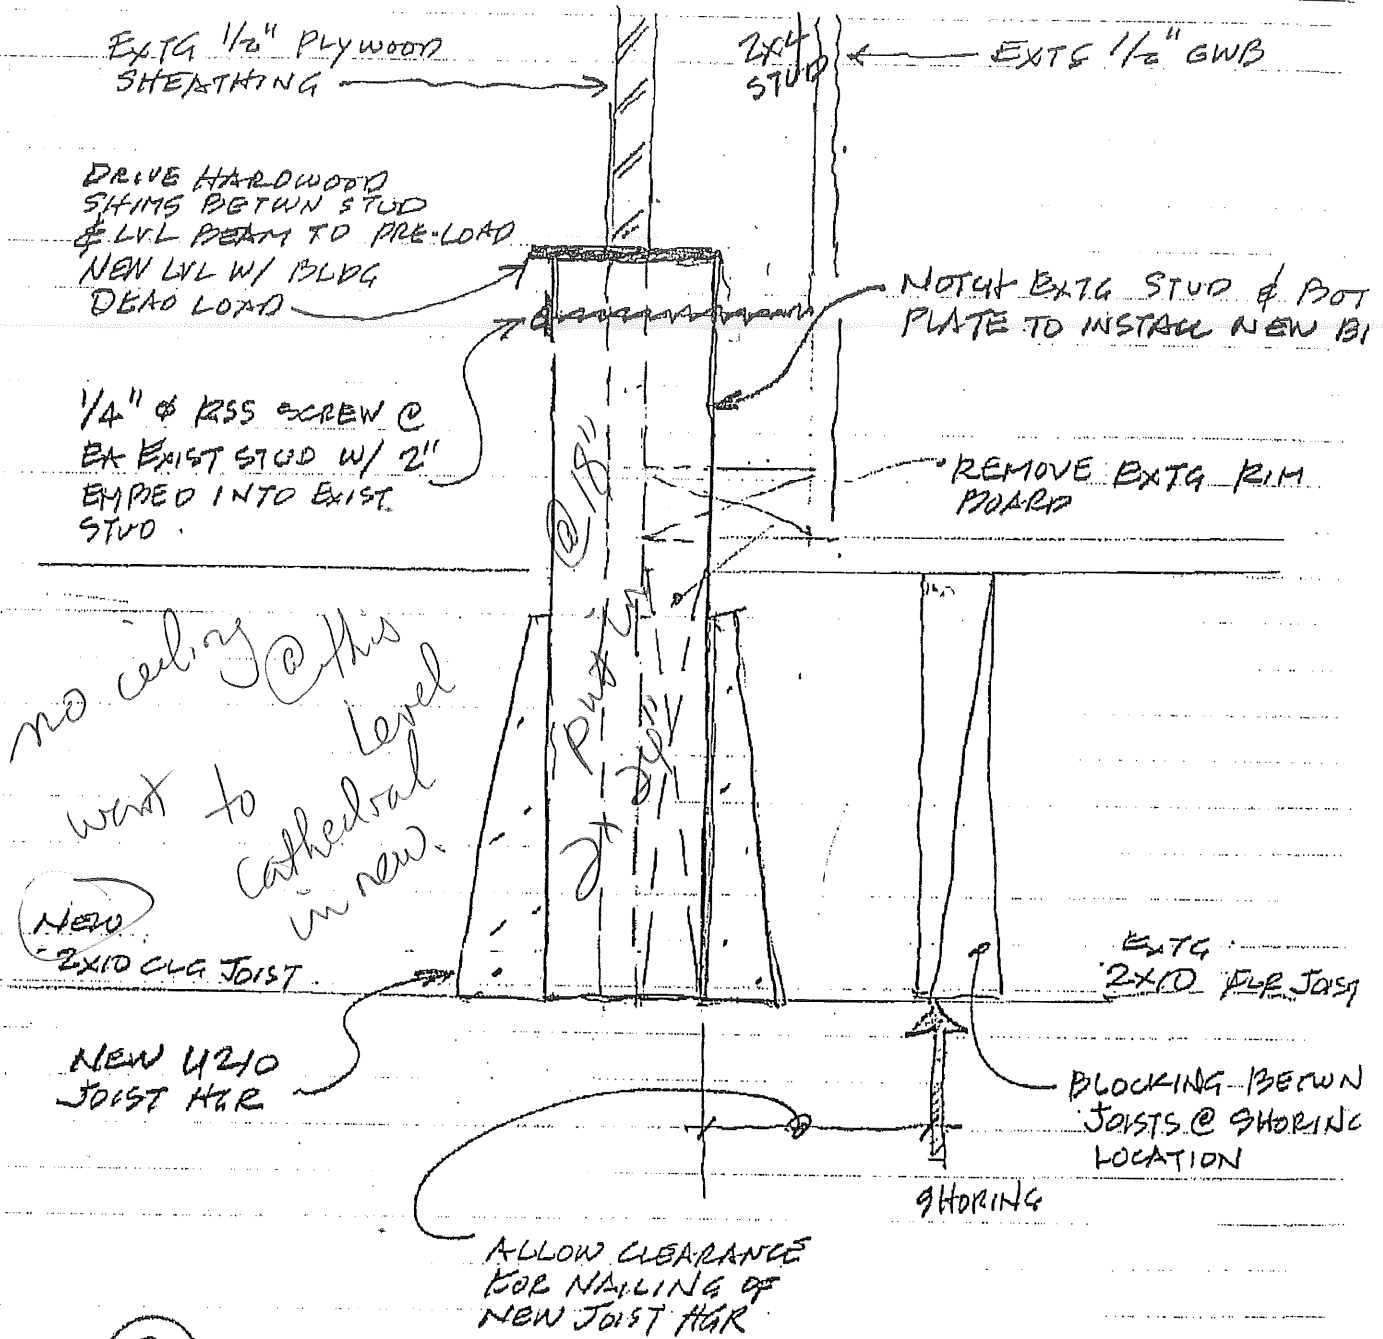 EXTG 1/2" PLYWOOD
SHEATHING
2x4
STUD
EXTG 1/2" GWB
DRIVE HARDWOOD
SHIMS BETWN STUD
& LVL BEAM TO PRE-LOAD
NEW LVL W/ BLDG
DEAD LOAD
NOTCH EXTG STUD & BOT
PLATE TO INSTALL NEW
1/4" Φ RSS SCREW @
EA EXIST STUD W/ 2"
EMBED INTO EXIST.
STUD.
REMOVE EXTG RIM
BOARD
@ 18"
put in
2x 24"
no ceiling @ this
Level
want to
cathedral
in new.
NEW
2X10 CLG JOIST
EXTG
2X10 FLR JOIST
NEW U210
JOIST HGR
BLOCKING BETWN
JOISTS @ SHORING
LOCATION
SHORING
ALLOW CLEARANCE
FOR NAILING OF
NEW JOIST HGR